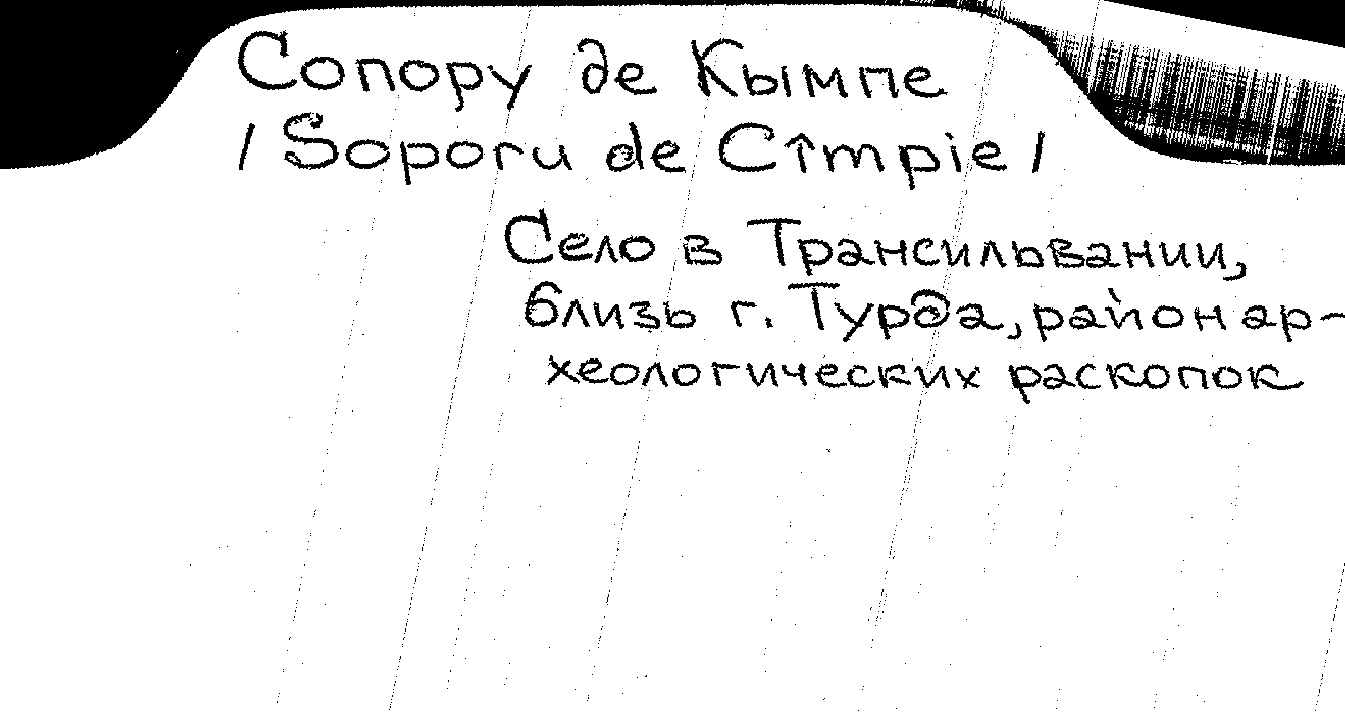 Сопору де Кымпе
/Soporu de Cîmpie/
Село в Трансильвании,
близь г. Турда, район ар-
хеологических раскопок